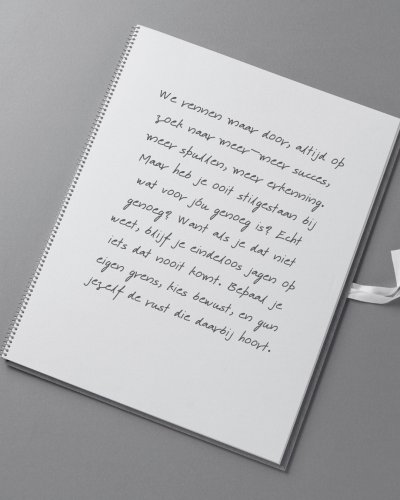 We rennen maar door, altijd op
zoek naar meer—meer succes,
meer spullen, meer erkenning.
Maar heb je ooit stilgestaan bij
wat voor jóu genoeg is? Echt
genoeg? Want als je dat niet
weet, blijf je eindeloos jagen op
iets dat nooit komt. Bepaal je
eigen grens, kies bewust, en gun
jezelf de rust die daarbij hoort.